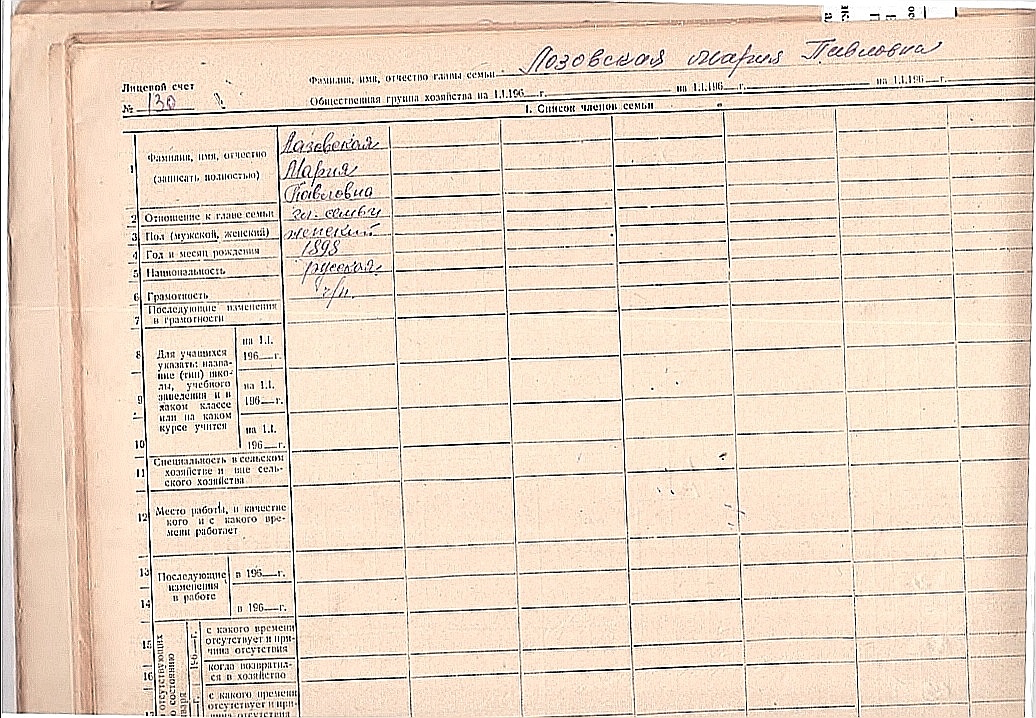 Фамилия, имя, отчество главы семьи Лозовская Мария Павловна
Лицевой счет
№ 130
Общественная группа хозяйства на 1.I.196 г. на 1.I.196 г. на 1.I.196 г.
I. Список членов семьи
1 Фамилия, имя, отчество (записать полностью)
Лазовская
Мария
Павловна
2 Отношение к главе семьи гл. семьи
3 Пол (мужской, женский) женский
4 Год и месяц рождения 1898
5 Национальность русская
6 Грамотность
7 Последующие изменения
в грамотности
8 Для учащихся
указать: назва-
ние (тип) шко-
лы, учебного
заведения и в
каком классе
или на каком
курсе учится
на 1.I.
196 г.
9 на 1.I.
196 г.
10 на 1.I.
196 г.
11 Специальность в сельском
хозяйстве и вне сель-
ского хозяйства
12 Место работы, в качестве
кого и с какого вре-
мени работает
13 Последующие
изменения
в работе
в 196 г.
14 в 196 г.
15 с какого времени
отсутствует и при-
чина отсутствия
16 когда возвратил-
ся в хозяйство
196 г.
отсутствующих
состоянию
с какого времени
отсутствует и при-
чина отсутствия